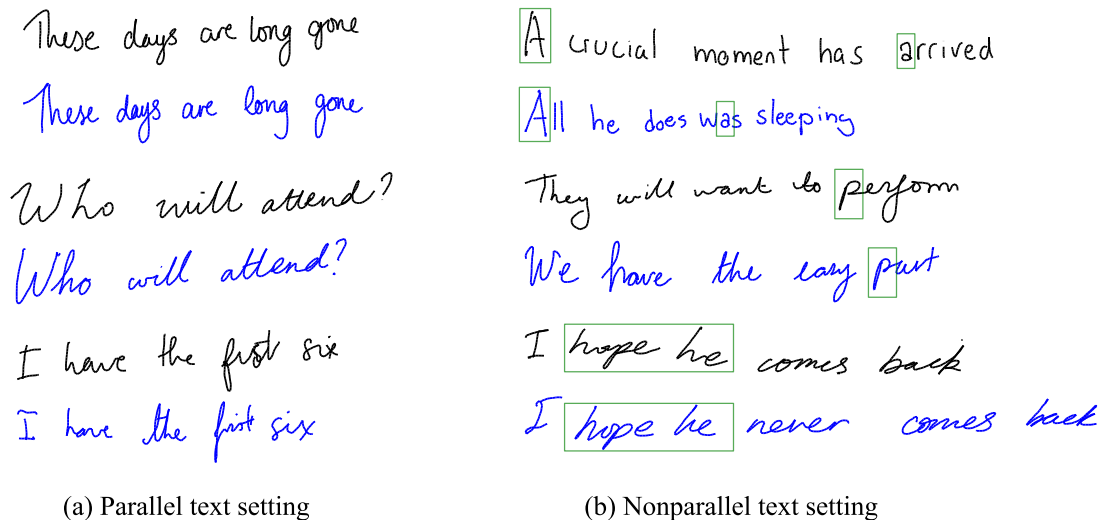 These days are long gone
These days are long gone
Who will attend?
Who will attend?
I have the first six
I have the first six
(a) Parallel text setting
A crucial moment has arrived
All he does was sleeping
They will want to perform
We have the easy part
I hope he comes back
I hope he never comes back
(b) Nonparallel text setting